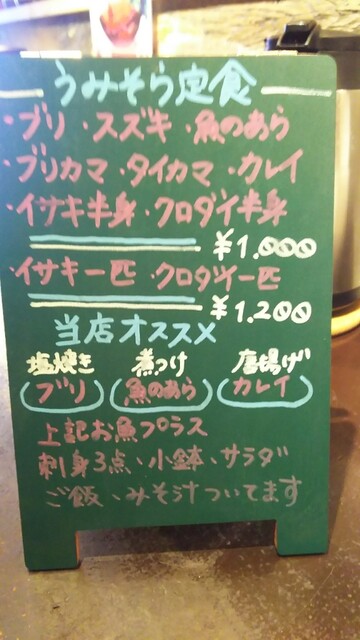 うみそら定食
・ブリ ・スズキ ・魚のあら
・ブリカマ ・タイカマ ・カレイ
・イサキ半身 ・クロダイ半身
¥1.000
・イサキ一匹 ・クロダイ一匹
¥1.200
当店オススメ
塩焼き 煮つけ 唐揚げ
ブリ 魚のあら カレイ
上記お魚プラス
刺身3点、小鉢、サラダ
ご飯、みそ汁ついてます